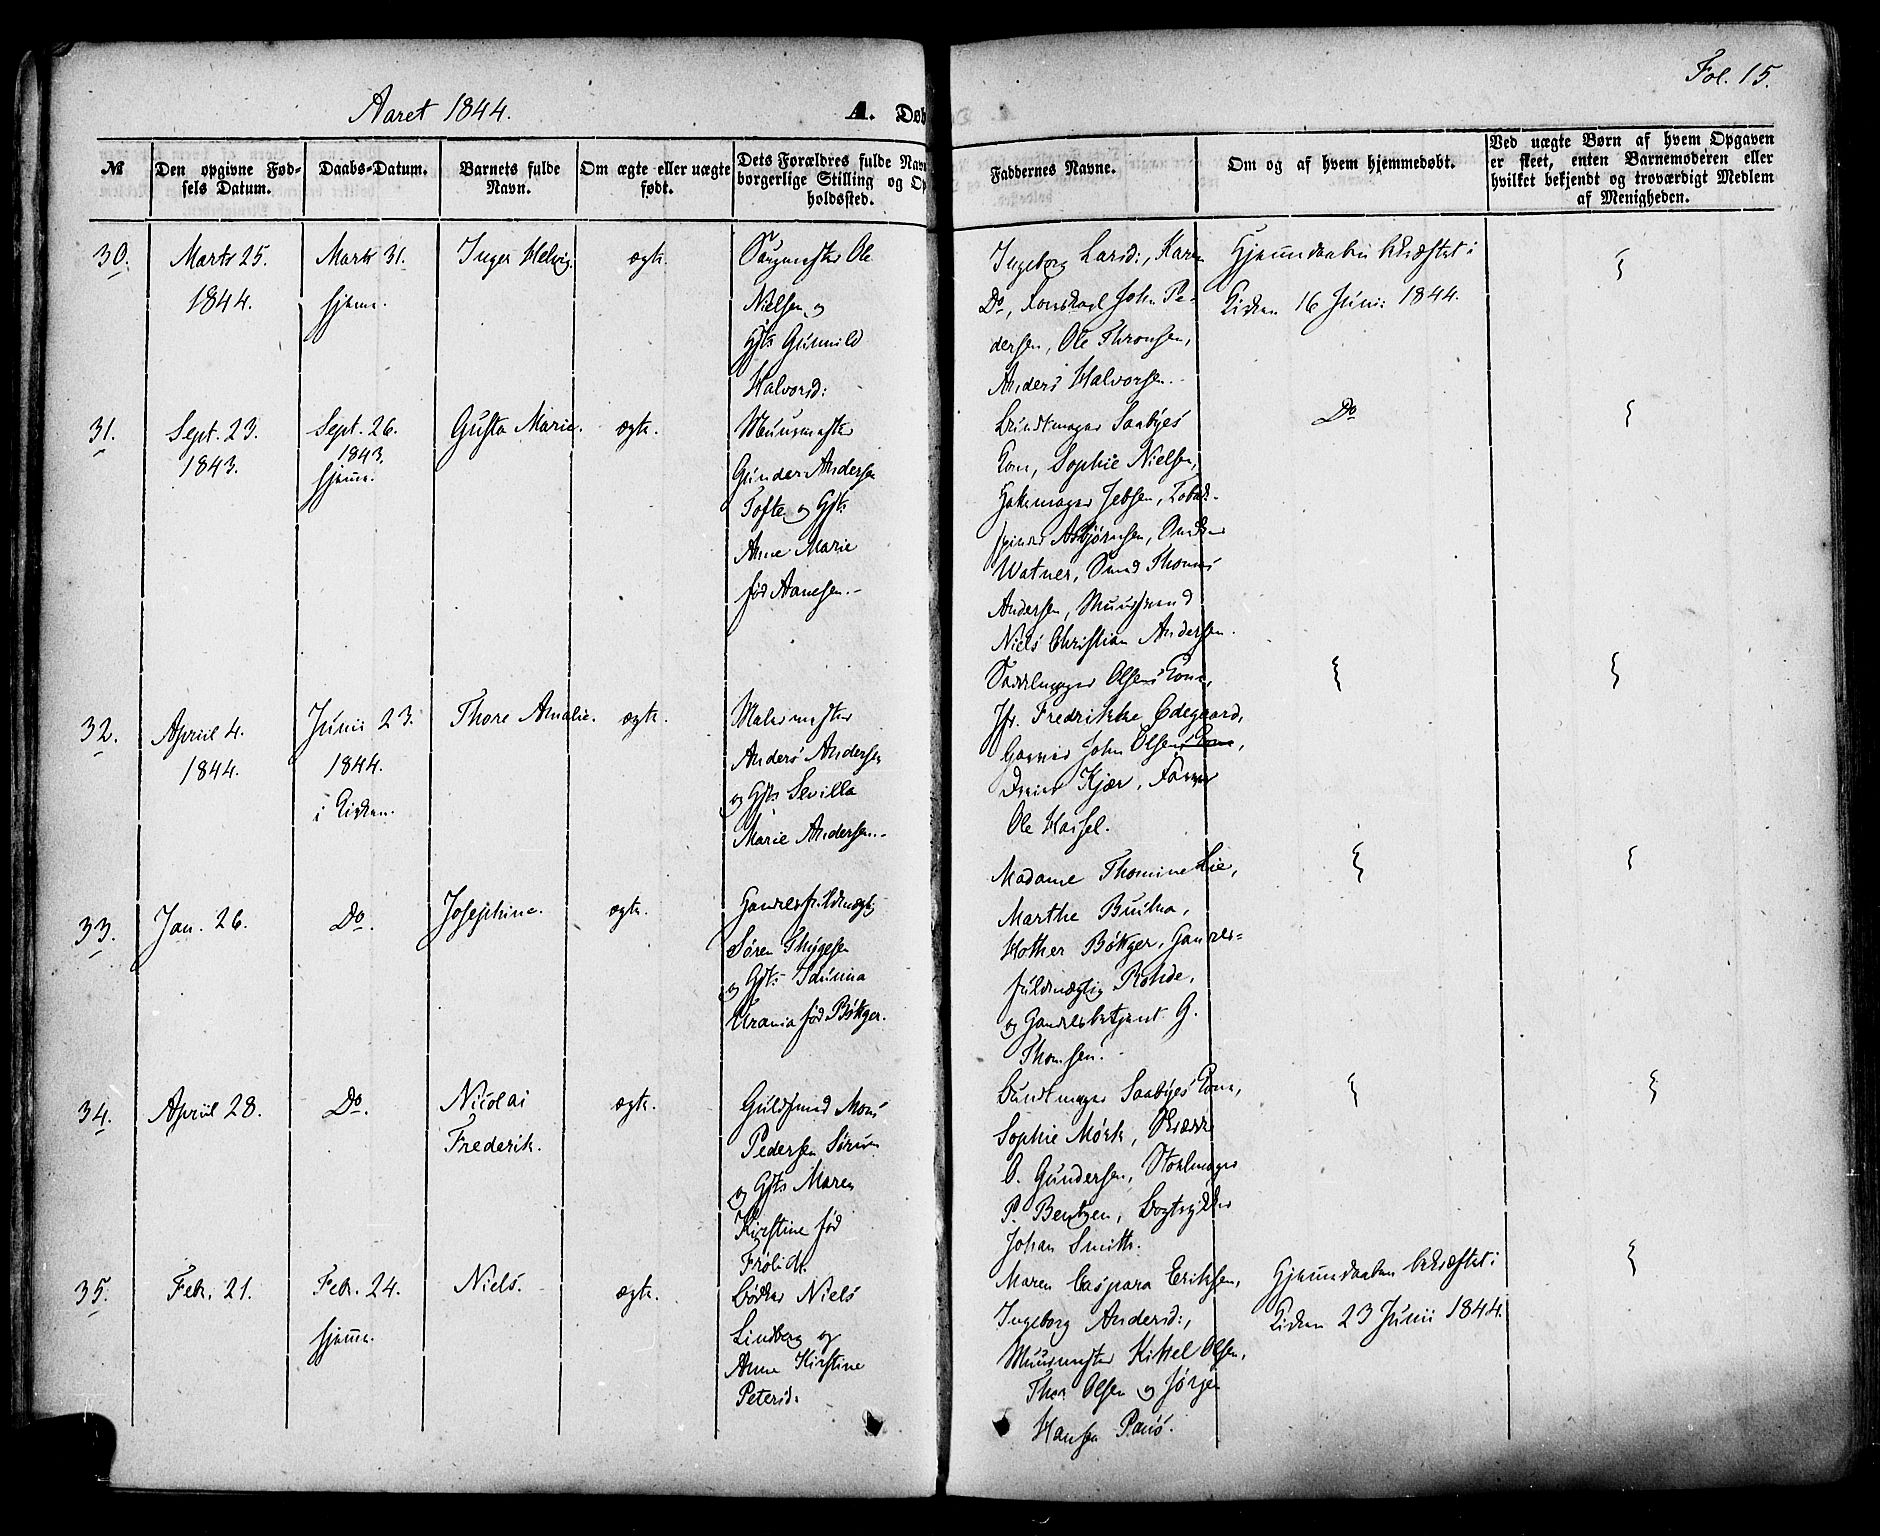 Fol. 15.
Aaret 1844.
A. Døb
№
Den opgivne Fød-
sels Datum.
Daabs-Datum.
Barnets fulde
Navn.
Om ægte eller uægte
født.
Dets Forældres fulde Navn
borgerlige Stilling og Op
holdssted.
Faddernes Navne.
Om og af hvem hjemmedøbt.
Ved uægte Børn af hvem Opgaven
er skeet, enten Barnemoderen eller
hvilket bekjendt og troværdigt Medlem
af Menigheden.
30.
Marts 25.
1844.
Marts 31.
hjemme.
Inger Helvig.
ægte.
Ole
Nielsen og
Gjts Gunnild
Halvorsd:
Ingeborg Larsd:, Karen
Do, John Pe-
dersen, Ole Thronsen,
Anders Halvorsen.
Hjemmedaaben bekræftet i
Kirken 16 Juni 1844.
31.
Sept. 23.
1843.
Sept. 26.
1843.
hjemme.
Gusta Marie.
ægte.
Muurmester
Gunder Andersen
Tofte og Gjts
Anne Marie
fød Aanesen.
Bundtmager Saabyes
Kone, Sophie Nielsen,
Jebsen, Tobak-
spinder Asbjørnsen, Snedker
Watner, Smed Thomas
Andersen, Muursvend
Niels Christian Andersen.
Do
32.
April 4.
1844.
Junii 23.
1844.
i Kirken.
Thore Amalie.
ægte.
Malermester
Anders Andersen
og Gjts Sevilla
Marie Andersen.
Sadelmager Olsens Kone,
Jfr. Fredrikke Ødegaard,
Garver John Olsens Kone,
Dreier Kjær, Farver
Ole Hassel.
33.
Jan. 26.
Do.
Josephine.
ægte.
Handelsfuldmægtig
Søren Thygesen
og Gjts Idunna
Urania fød Bøtger.
Madame Thomine Lie,
Marthe
Hother Bøtger, Handels-
fuldmægtig Rohde,
og Handelsbetjent G.
Thomsen.
34.
April 28.
Do.
Nicolai
Frederik.
ægte.
Guldsmed Mons
Pedersen Sørum
og Gjts Maren
Kirstine fød
Frølich.
Bundtmager Saabyes Kone,
Sophie Mørk,
O. Gundersen, Stolmager
P. Bentzen, Bogtrykker
Johan Smith.
35.
Febr. 21.
Febr. 24.
hjemme.
Niels.
ægte.
Bødker Niels
Lindberg og
Anne Kirstine
Petersd.
Maren Caspara Eriksen,
Ingeborg Andersd:,
Muurmester Kittel Olsen,
Thor Olsen og Jørgen
Hansen
Hjemmedaaben bekræftet i
Kirken 23 Junii 1844.